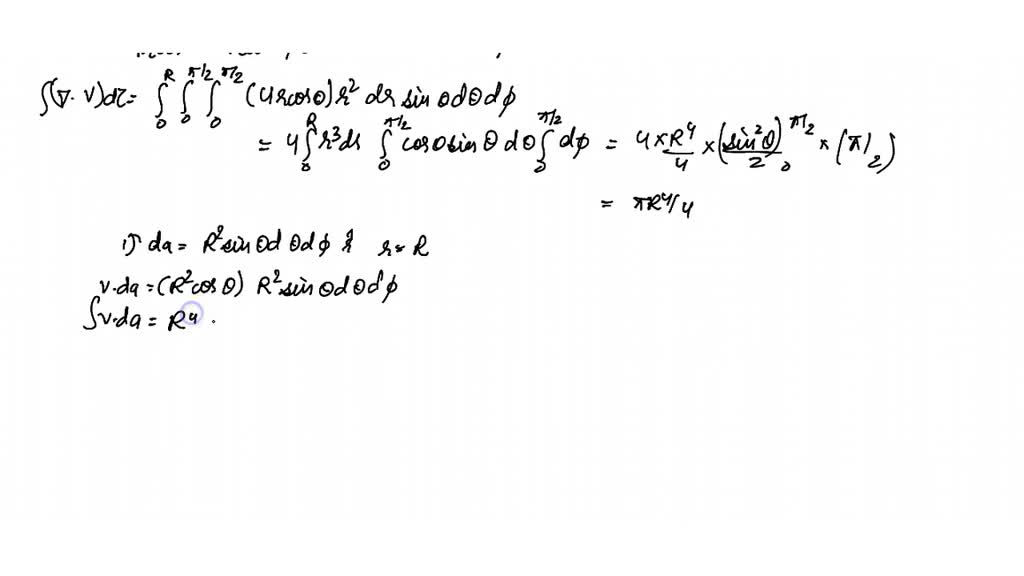 ∫(∇·v)dτ = ∫₀^R ∫₀^π/2 ∫₀^π/2 (4rcosθ) r² dr sinθ dθ dφ
= 4 ∫₀^R r³dr ∫₀^π/2 cosθ sinθ dθ ∫₀^π/2 dφ = 4 × R⁴/4 × (sin²θ/2)₀^π/2 × (π/2)
= πR⁴/4
1) da = R² sinθ dθ dφ r̂ r = R
v·da = (R² cosθ) R² sinθ dθ dφ
∫v·da = R⁴ .